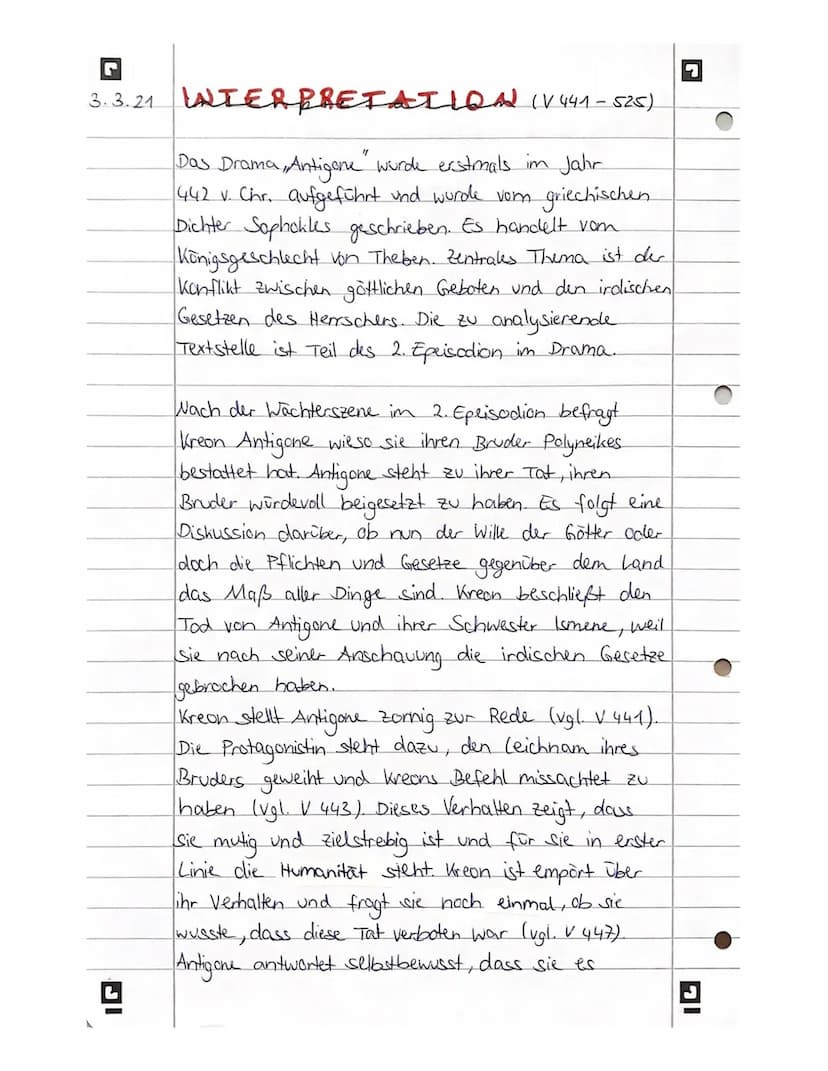 3.3.21 INTERPRETATION (V 441 - 525)
Das Drama „Antigone" wurde erstmals im Jahr
442 v. Chr. aufgeführt und wurde vom griechischen
Dichter Sophokles geschrieben. Es handelt vom
Königsgeschlecht von Theben. Zentrales Thema ist der
Konflikt zwischen göttlichen Geboten und den irdischen
Gesetzen des Herrschers. Die zu analysierende
Textstelle ist Teil des 2. Epeisodion im Drama.
Nach der Wächterszene im 2. Epeisodion befragt
Kreon Antigone wieso sie ihren Bruder Polyneikes
bestattet hat. Antigone steht zu ihrer Tat, ihren
Bruder würdevoll beigesetzt zu haben. Es folgt eine
Diskussion darüber, ob nun der Wille der Götter oder
doch die Pflichten und Gesetze gegenüber dem Land
das Maß aller Dinge sind. Kreon beschließt den
Tod von Antigone und ihrer Schwester Ismene, weil
sie nach seiner Anschauung die irdischen Gesetze
gebrochen haben.
Kreon stellt Antigone zornig zur Rede (vgl. V 441).
Die Protagonistin steht dazu, den Leichnam ihres
Bruders geweiht und Kreons Befehl missachtet zu
haben (vgl. V 443). Dieses Verhalten zeigt, dass
sie mutig und zielstrebig ist und für sie in erster
Linie die Humanität steht. Kreon ist empört über
ihr Verhalten und fragt sie noch einmal, ob sie
wusste, dass diese Tat verboten war (vgl. V 447).
Antigone antwortet selbstbewusst, dass sie es